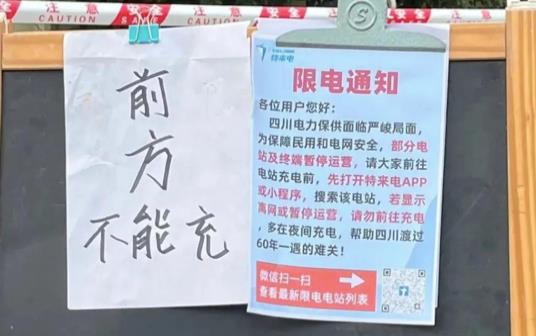 注意安全
CAUTION
注意安全
CAUTION
注意安全
CAUTION
前
方
不能充
特来电
限电通知
各位用户您好：
四川电力保供面临严峻局面，
为保障民用和电网安全，部分电
站及终端暂停运营，请大家前往
电站充电前，先打开特来电APP
或小程序，搜索该电站，若显示
离网或暂停运营，请勿前往充电
，多在夜间充电，帮助四川渡过
60年一遇的难关！
微信扫一扫
查看最新限电电站列表